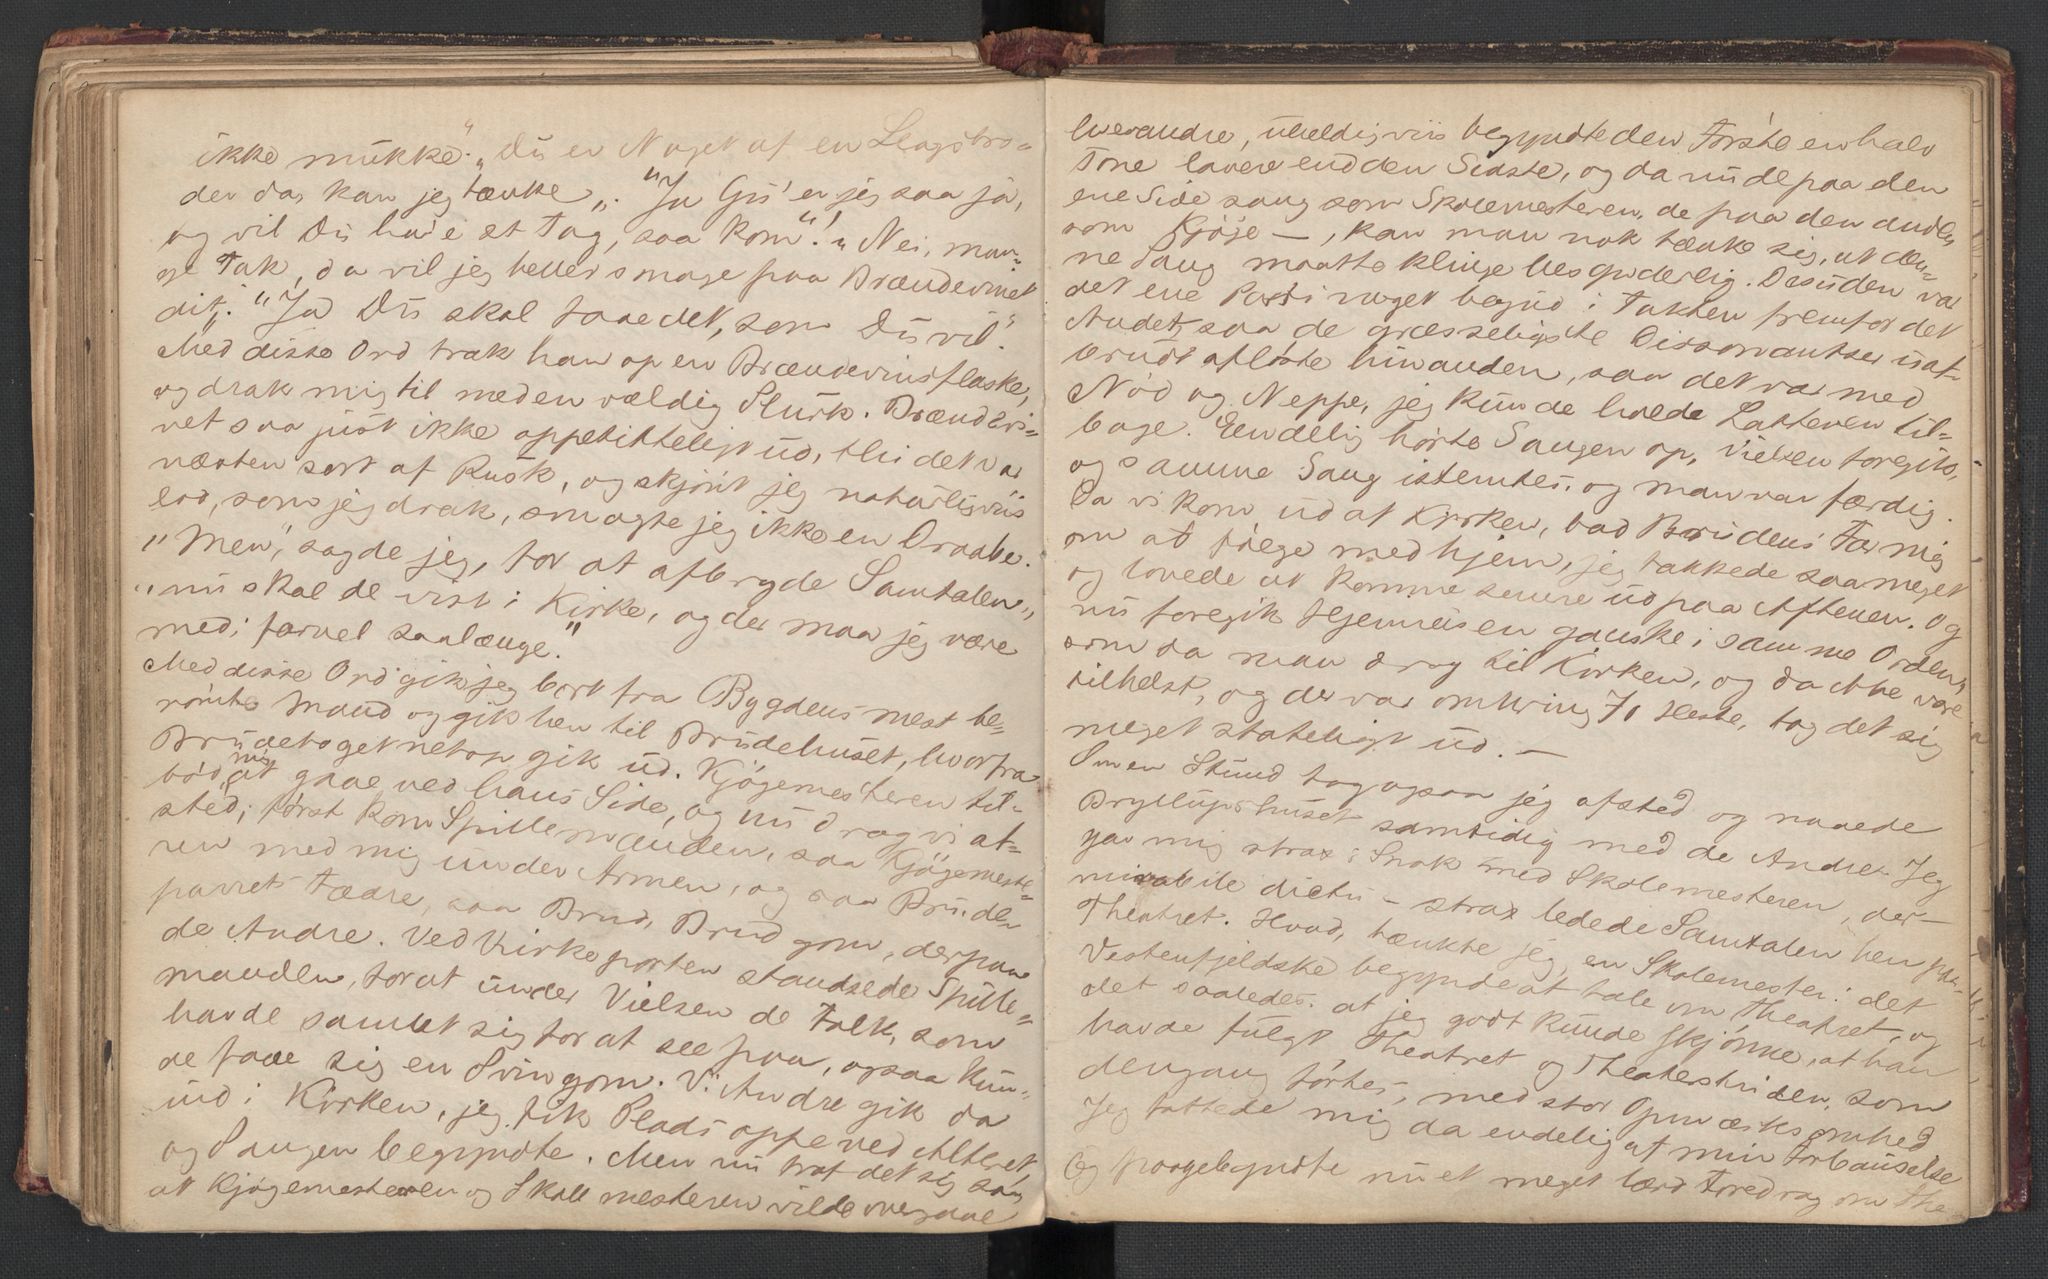 ikke mukke." "Du er Noget af en Slagsbro-
der da, kan jeg tænke". "Ja Gu' er jeg saa ja,
og vil Du ha'e et Tag, saa kom"! "Nei, man-
ge Tak, da vil jeg heller smage paa Brændevinet
dit". "Ja Du skal faae det, som Du vil".
Med disse Ord trak han op en Brændevinsflaske,
og drak mig til med en vældig Slurk. Brændevi-
net saa just ikke appetitteligt ud, thi det var
næsten sort af Rusk, og skjönt jeg naturligviis
lod, som jeg drak, smagte jeg ikke en Draabe.
"Men", sagde jeg, for at afbryde Samtalen,
"nu skal de vist i Kirke, og der maa jeg være
med; farvel saalænge."
Med disse Ord gik jeg bort fra Bygdens mest be-
römte Mand og gik hen til Brudehuset, hvorfra
Brudetoget netop gik ud. Kjögemesteren til-
böd mig at gaae ved hans Side, og nu drog vi af-
sted; först kom Spillemanden, saa Kjögemeste-
ren med mig under Armen, og saa Brude-
parrets Fædre, saa Brud, Brudgom, derpaa
de Andre. Ved Kirkeporten standsede Spille-
manden, for at under Vielsen de Folk, som
havde samlet sig for at see paa, ogsaa kun-
de faae sig en Svingom. Vi Andre gik da
ind i Kirken, jeg fik Plads oppe ved Alteret,
og Sangen begyndte. Men nu traf det sig saa,
at Kjögemesteren og Skolemesteren vilde overgaae
hverandre, uheldigviis begyndte den Förste en halv
Tone lavere end den Sidste, og da nu de paa den
ene Side sang som Skolemesteren, de paa den anden
som Kjöge—, kan man nok tænke sig, at den-
ne Sang maatte klinge besynderlig. Desuden var
det ene Parti noget bagud i Takten fremfor det
Andet, saa de græsseligste Dissonantser uaf-
brudt aflöste hinanden, saa det var med
Nöd og Neppe, jeg kunde holde Latteren til-
bage. Eendelig hörte Sangen op, Vielsen foregik,
og samme Sang istemtes, og man var færdig.
Da vi kom ud af Kirken, bad Brudens Far mig
om at fölge med hjem, jeg takkede saa meget
og lovede at komme senere ud paa Aftenen. Og
nu foregik Hjemreisen ganske i samme Orden,
som da man drog til Kirken, og da Alle vare
tilhest, og der var omkring 70 Heste, tog det sig
meget stateligt ud. —
Om en Stund tog ogsaa jeg afsted og naaede
Bryllupshuset samtidig med de Andre. Jeg
gav mig strax i Snak med Skolemesteren, der—
mirabile dictu – strax ledede Samtalen hen paa
Theatret. Hvad, tænkte jeg, en Skolemester i det
Vestenfjeldske begynde at tale om Theatret, og
det saaledes, at jeg godt kunde skjönne, at han
havde fulgt Theatret og Theaterstriden, som
dengang förtes, med stor Opmærksomhed
Jeg fattede mig da endelig af min Forbauselse
og paabegyndte nu et meget lærd Foredrag om The